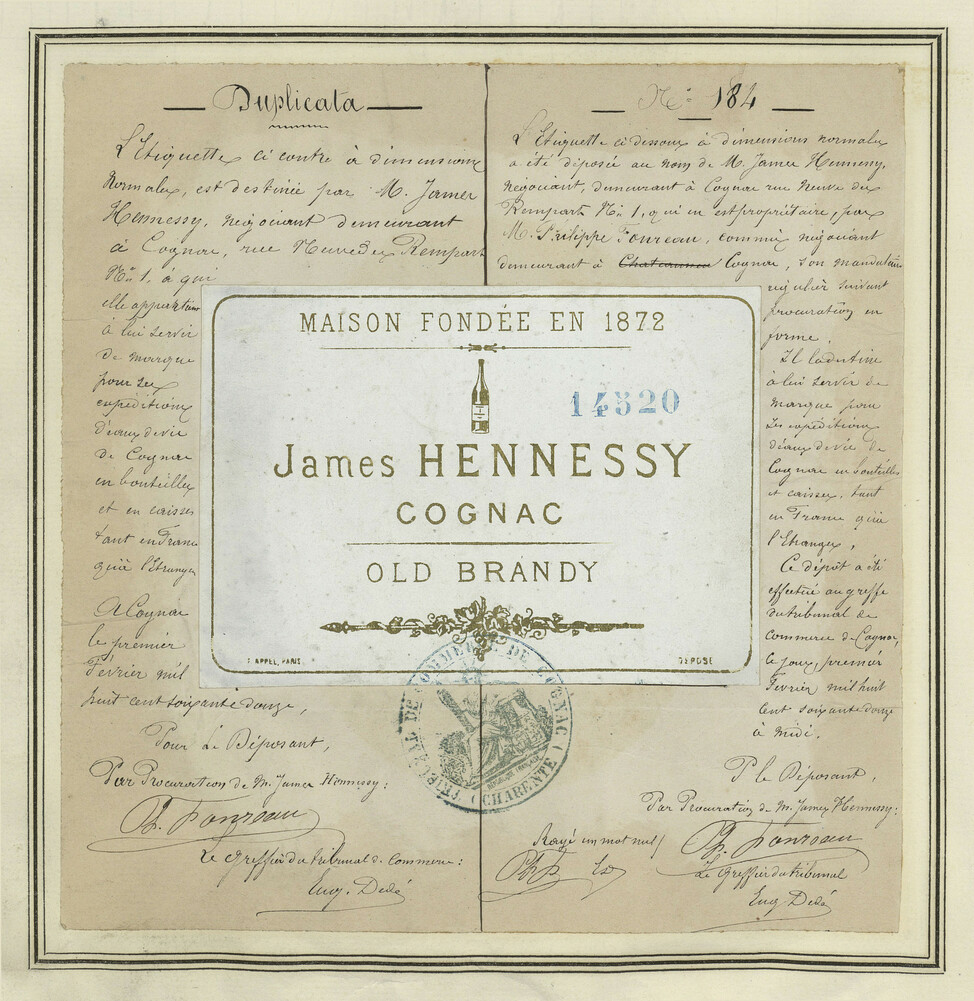 Duplicata
L'Etiquette ci contre à dimensions
normales, est destinée par M. James
Hennessy, négociant demeurant
à Cognac, rue Neuve des Remparts
N° 1, à qui
elle appartient
à lui servir
de marque
pour ses
expéditions
d'eaux de vie
de Cognac
en bouteilles
et en caisses
tant en France
qu'à l'Etranger
A Cognac
le premier
Février mil
huit cent soixante douze,
Pour le Déposant,
Par Procuration de M. James Hennessy:
Ph. Fonreau
Le Greffier du tribunal de Commerce:
Eug. Dedé
N° 184
L'Etiquette ci dessous à dimensions normales
a été déposée au nom de M. James Hennessy,
négociant, demeurant à Cognac rue Neuve des
Remparts N° 1, qui en est propriétaire, par
M. Philippe Fonreau, commis négociant
demeurant à Cognac, son mandataire
régulier suivant
procuration en
forme.
Il la destine
à lui servir de
marque pour
ses expéditions
d'eaux de vie de
Cognac en bouteilles
et caisses, tant
en France qu'à
l'Etranger.
Ce dépôt a été
effectué au greffe
du tribunal de
commerce de Cognac,
ce jour, premier
Février mil huit
cent soixante douze
à midi.
P le Déposant,
Par Procuration de M. James Hennessy:
Ph. Fonreau
Rayé un mot nul
Le Greffier du tribunal
Eug. Dedé
MAISON FONDÉE EN 1872
14520
James HENNESSY
COGNAC
OLD BRANDY
F. APPEL, PARIS.
DÉPOSÉ
TRIBUNAL DE COMMERCE DE COGNAC
(CHARENTE)